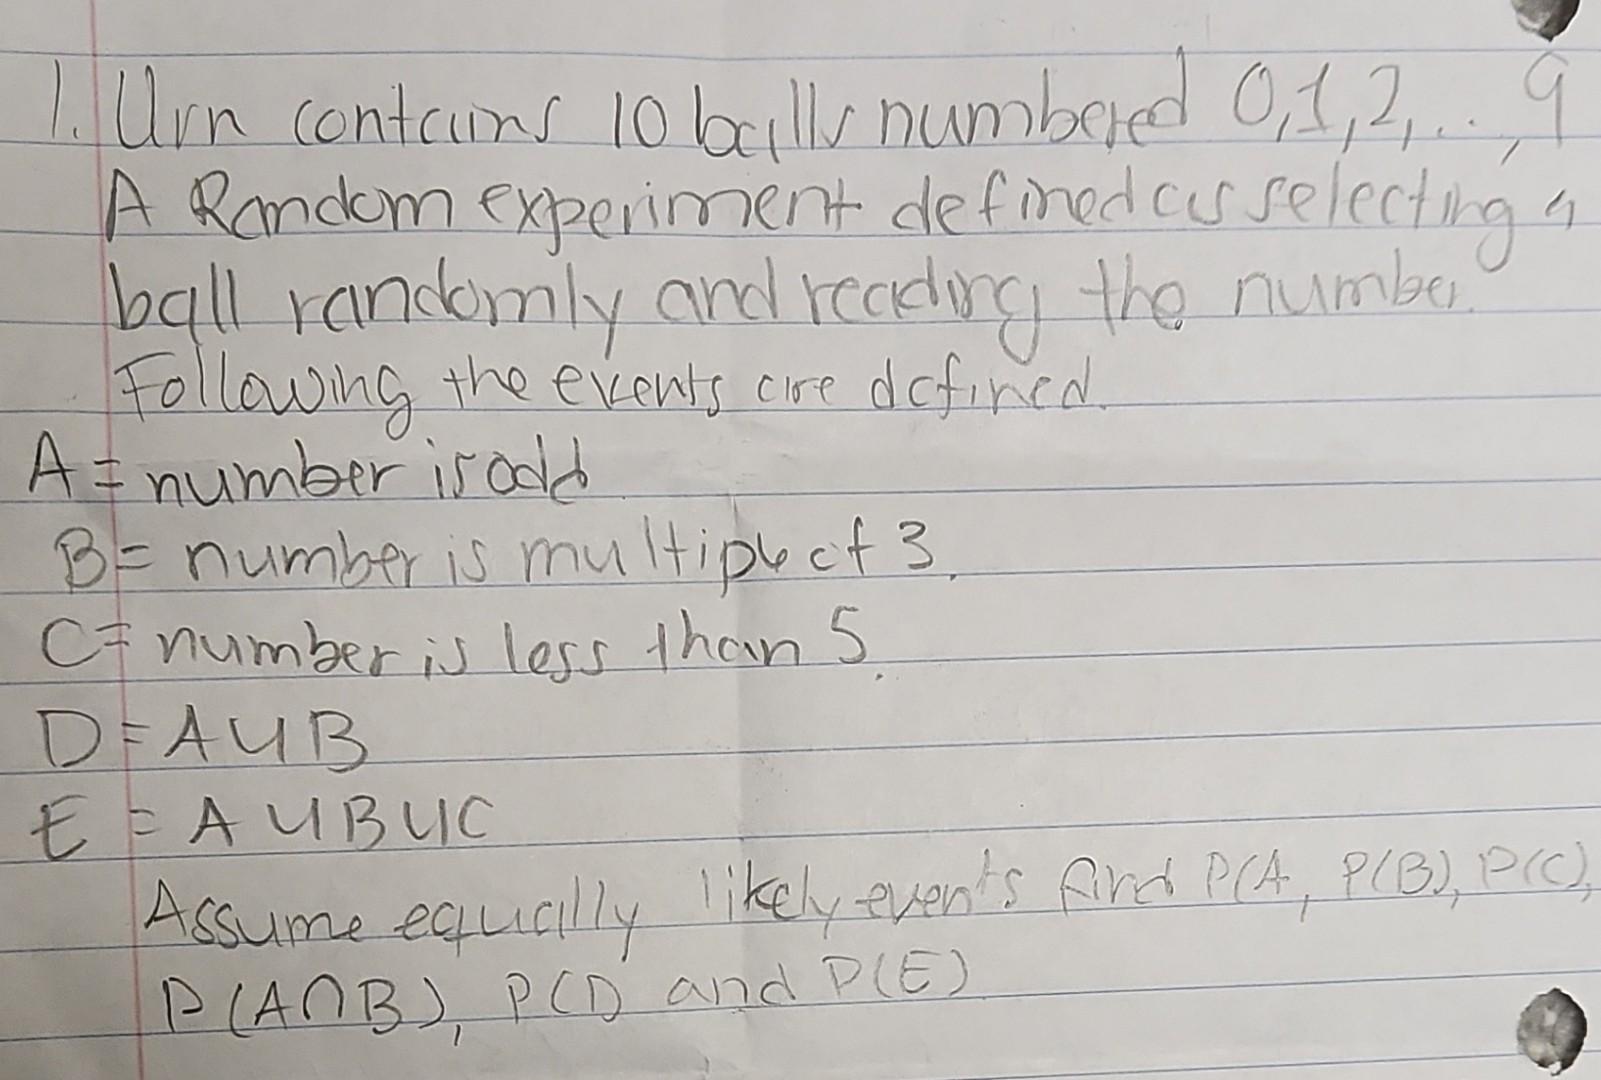 1. Urn contains 10 balls numbered 0,1,2,...,9
A Random experiment defined as selecting a
ball randomly and reading the number.
Following the events are defined.
A = number is odd
B = number is multiple of 3.
C = number is less than 5.
D = A ∪ B
E = A ∪ B ∪ C
Assume equally likely events find P(A, P(B), P(C),
P(A∩B), P(D) and P(E)